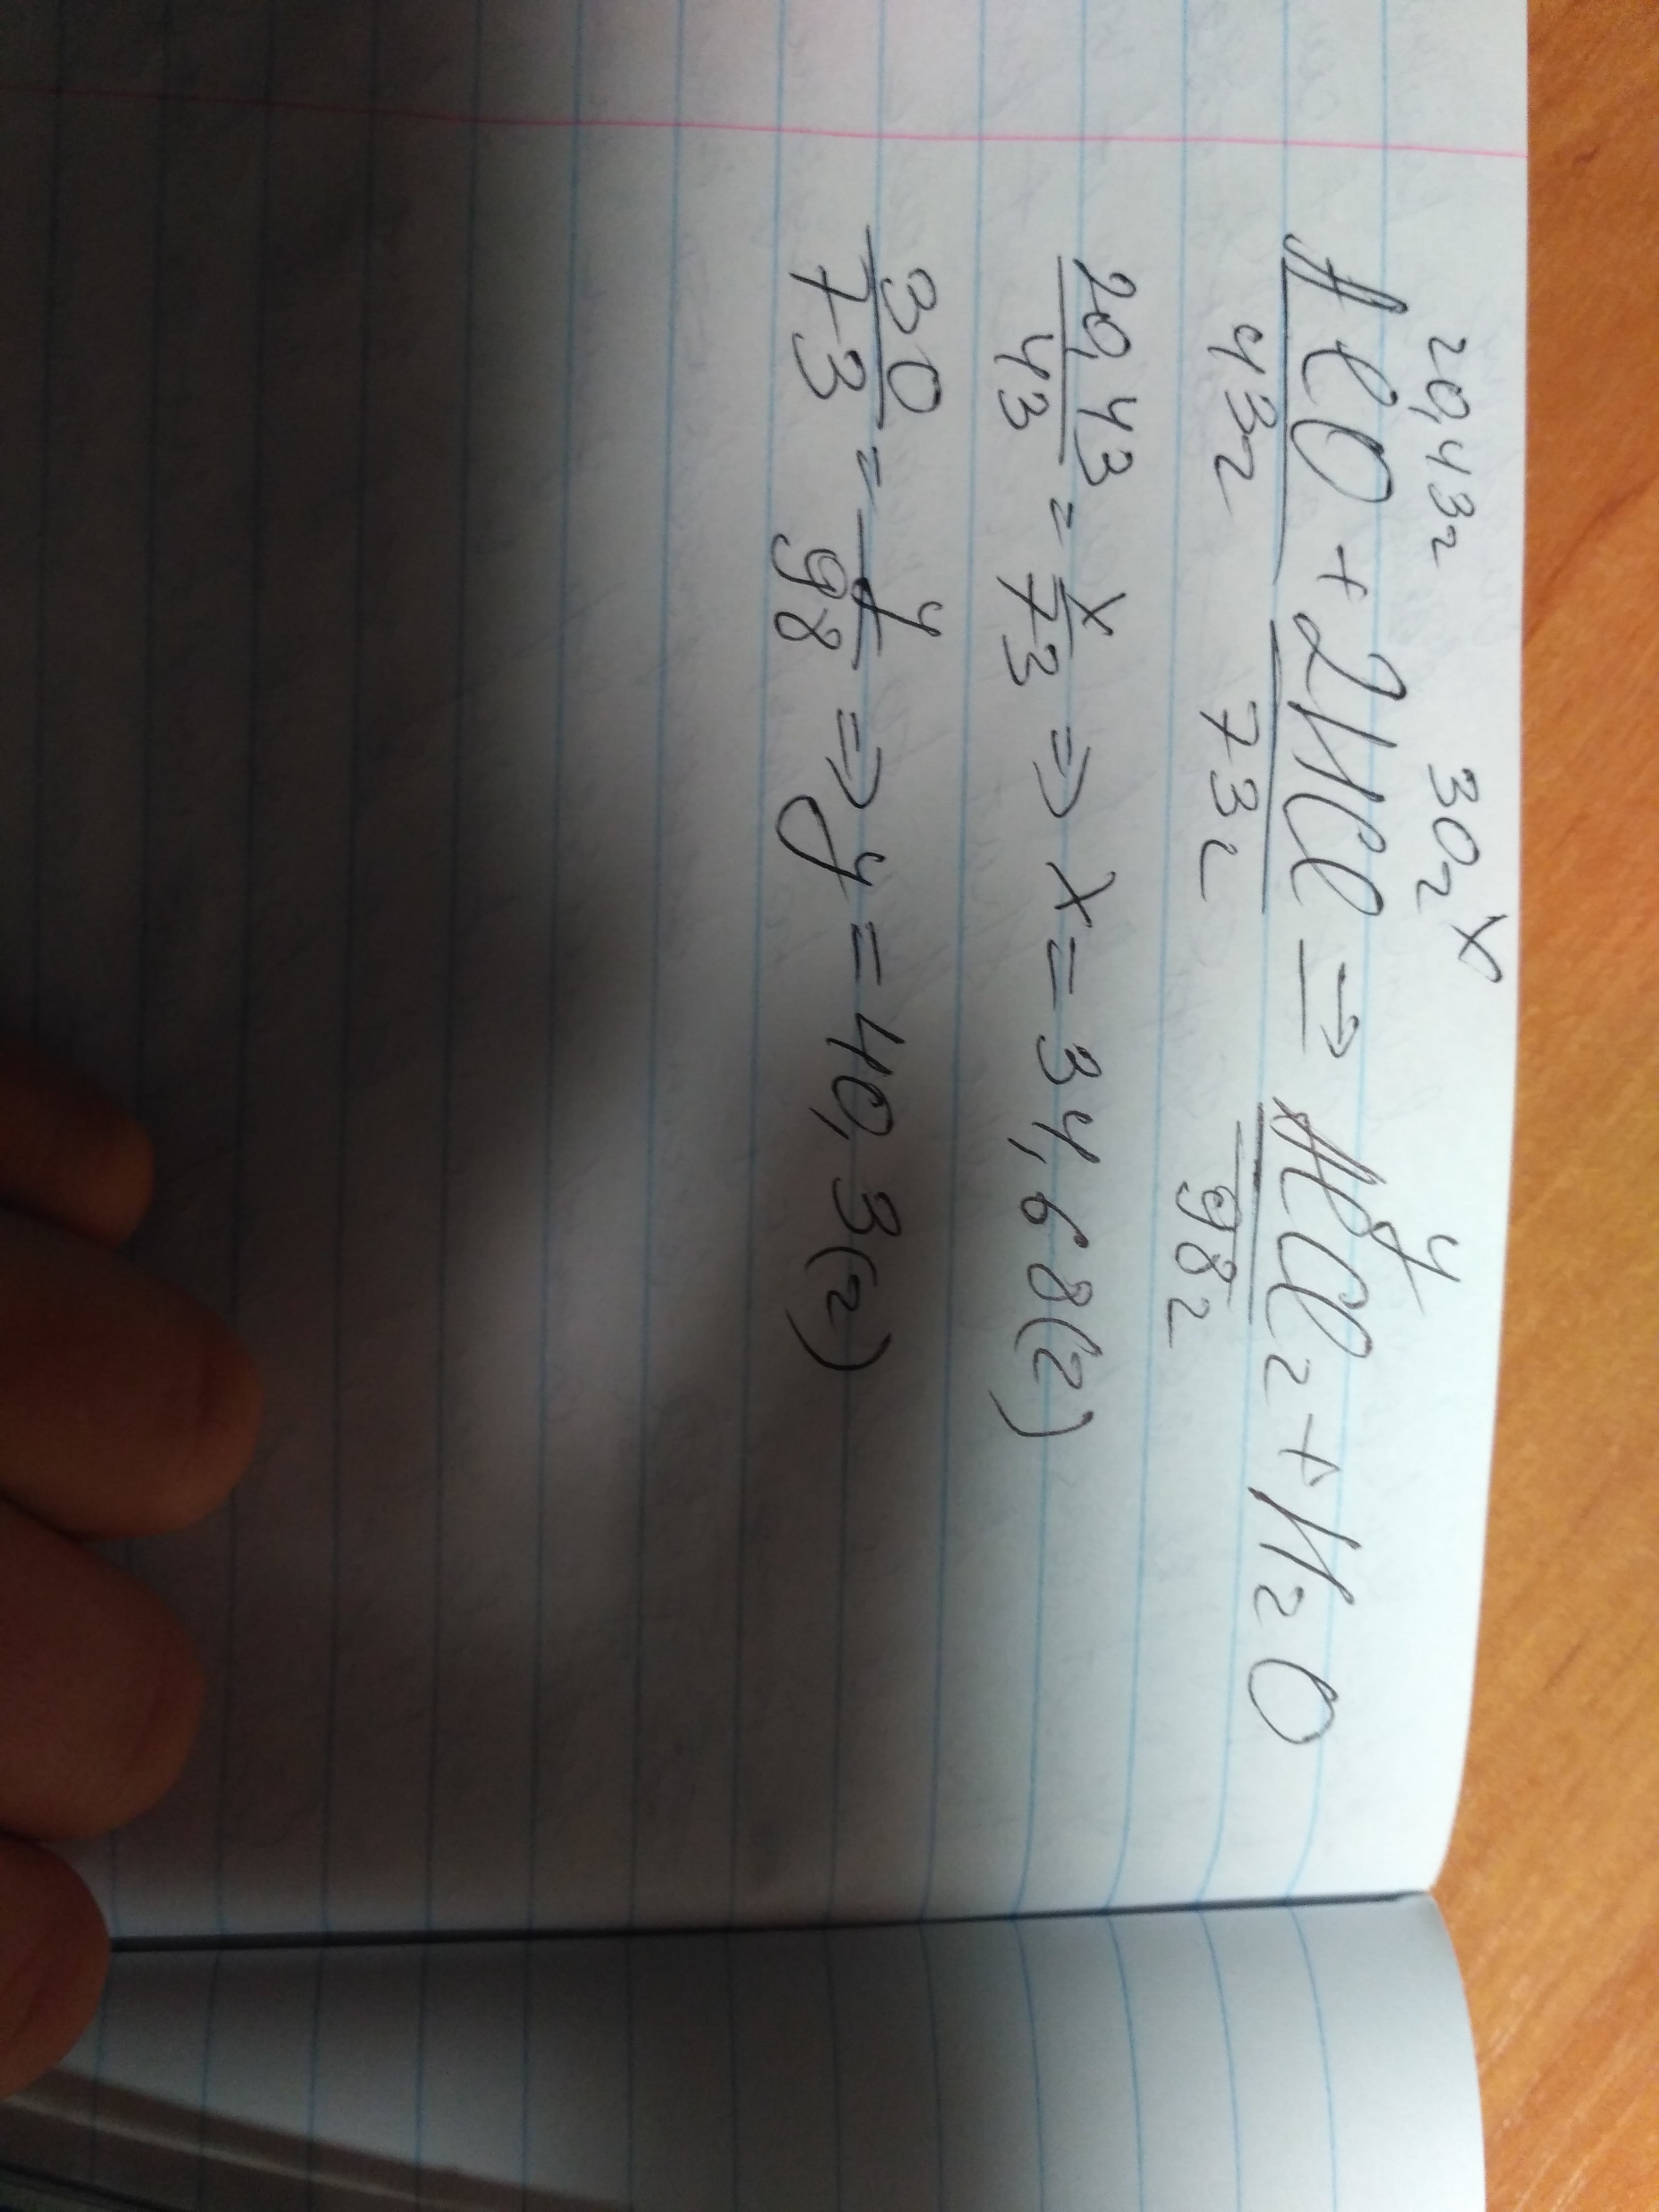 20,43г 30г x y
AlO + 2HCl => AlCl2 + H2O
43г 73г 98г
20,43/43 = x/73 => x = 34,68(г)
30/73 = y/98 => y = 40,3(г)